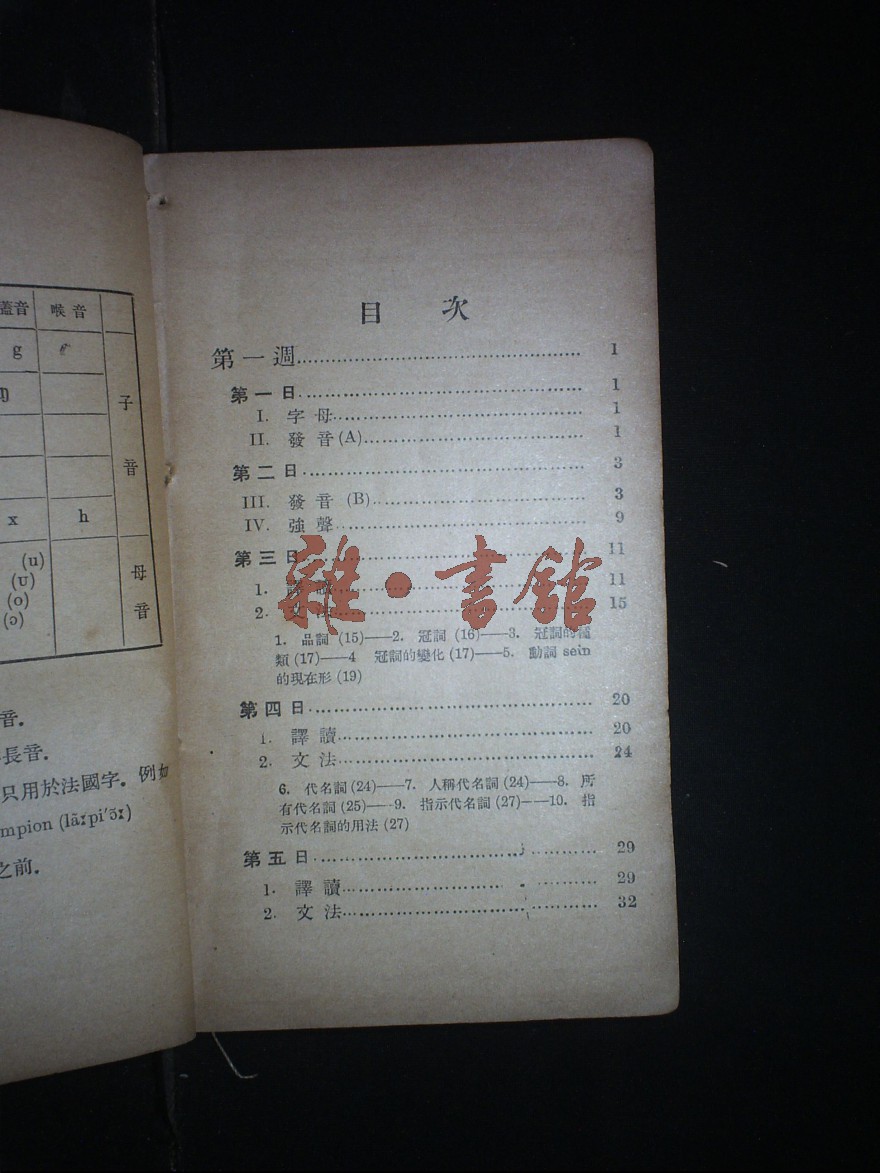 蓋音 喉音
g
子
音
x h
(u)
(ʊ)
(o)
(ɔ)
母
音
音.
長音.
只用於法國字. 例如
mpion (lãːpi'ɔ̃ː)
之前.
目 次
第一週 1
第一日 1
I. 字母 1
II. 發音(A) 1
第二日 3
III. 發音 (B) 3
IV. 強聲 9
第三日 11
1. 譯讀 11
2. 文法 15
1. 品詞 (15)——2. 冠詞 (16)——3. 冠詞的種
類 (17)——4 冠詞的變化 (17)——5. 動詞 sein
的現在形 (19)
第四日 20
1. 譯讀 20
2. 文法 24
6. 代名詞 (24)——7. 人稱代名詞 (24)——8. 所
有代名詞 (25)——9. 指示代名詞 (27)——10. 指
示代名詞的用法 (27)
第五日 29
1. 譯讀 29
2. 文法 32
雜·書館